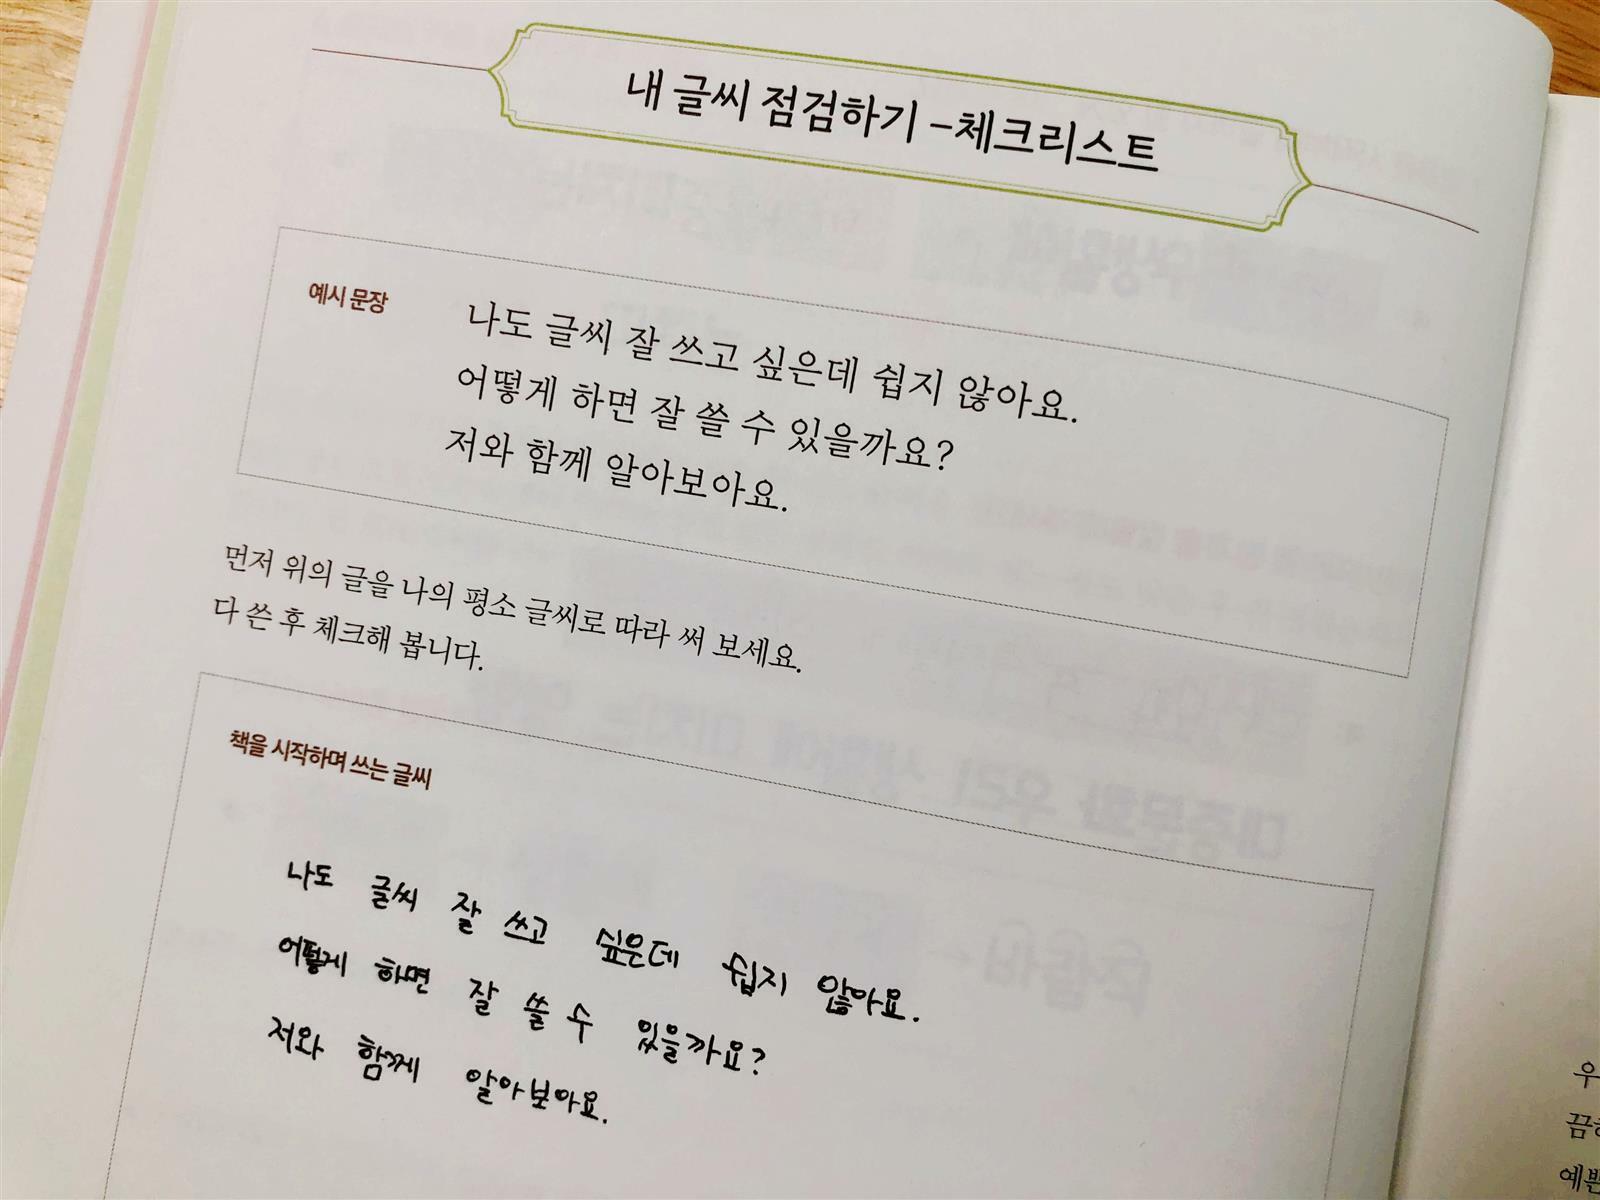 내 글씨 점검하기 -체크리스트
예시 문장
나도 글씨 잘 쓰고 싶은데 쉽지 않아요.
어떻게 하면 잘 쓸 수 있을까요?
저와 함께 알아보아요.
먼저 위의 글을 나의 평소 글씨로 따라 써 보세요.
다 쓴 후 체크해 봅니다.
책을 시작하며 쓰는 글씨
나도 글씨 잘 쓰고 싶은데 쉽지 않아요.
어떻게 하면 잘 쓸 수 있을까요?
저와 함께 알아보아요.